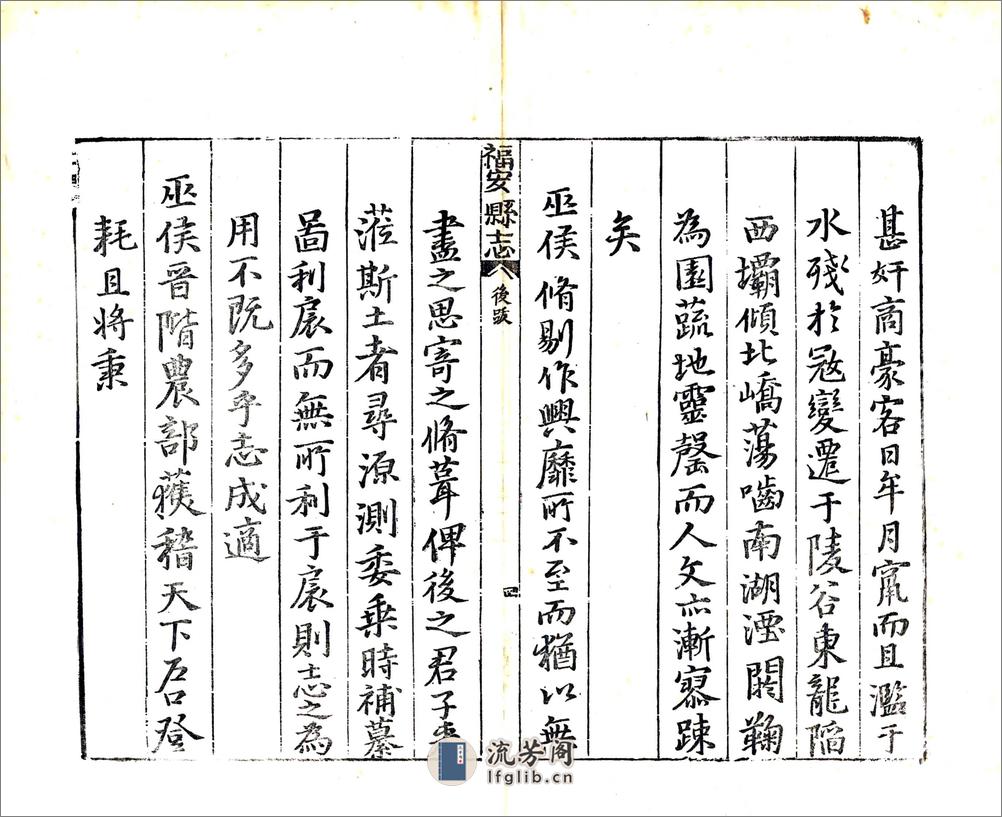 甚奸商豪客日年月寘而且濫于
水殘於冦變遷于陵谷東龍陷
西壩傾北嶠蕩嚙南湖湮閼鞠
為園蔬地靈罄而人文亦漸寥踈
矣
巫侯脩剔作興靡所不至而猶以無
福安縣志
八
後跋
四
盡之思寄之脩葺俾後之君子
蒞斯土者尋源測委乗時補葺
啚利㞡而無所利于㞡則志之為
用不既多乎志成適
巫侯晉階農部蒦稽天下石登
耗且將秉
流芳阁
lfglib.cn